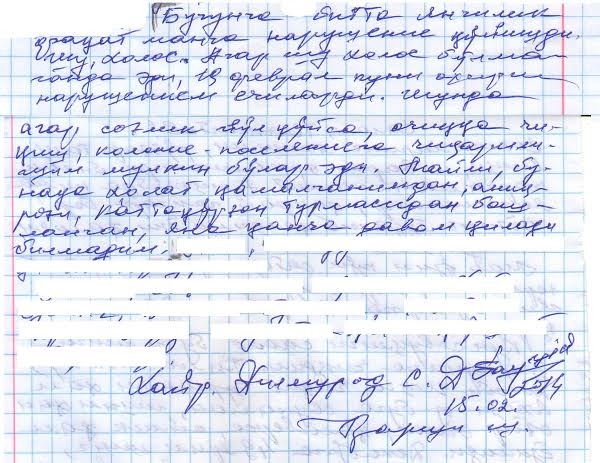 Бугунча битта янчилик
фақат манча нарушение қўйишди.
Шу, холос. Агар шу холос бўлма-
ганда эди, 18 феврал куни охирги
нарушением ечиларди. Шунда
агар соғлик йўл қўйса, очиққа чи-
қиш, колоние-поселенига чиқарили-
шим мумкин бўлар эди. Майли, бу-
нақа ҳолат қамалганимдан, аниқ-
роғи, Каттақўрғон турмасидан бош-
ланган, яна қанча давом қилади
билмадим.
Хайр. Д
2014
15.02.
ш.